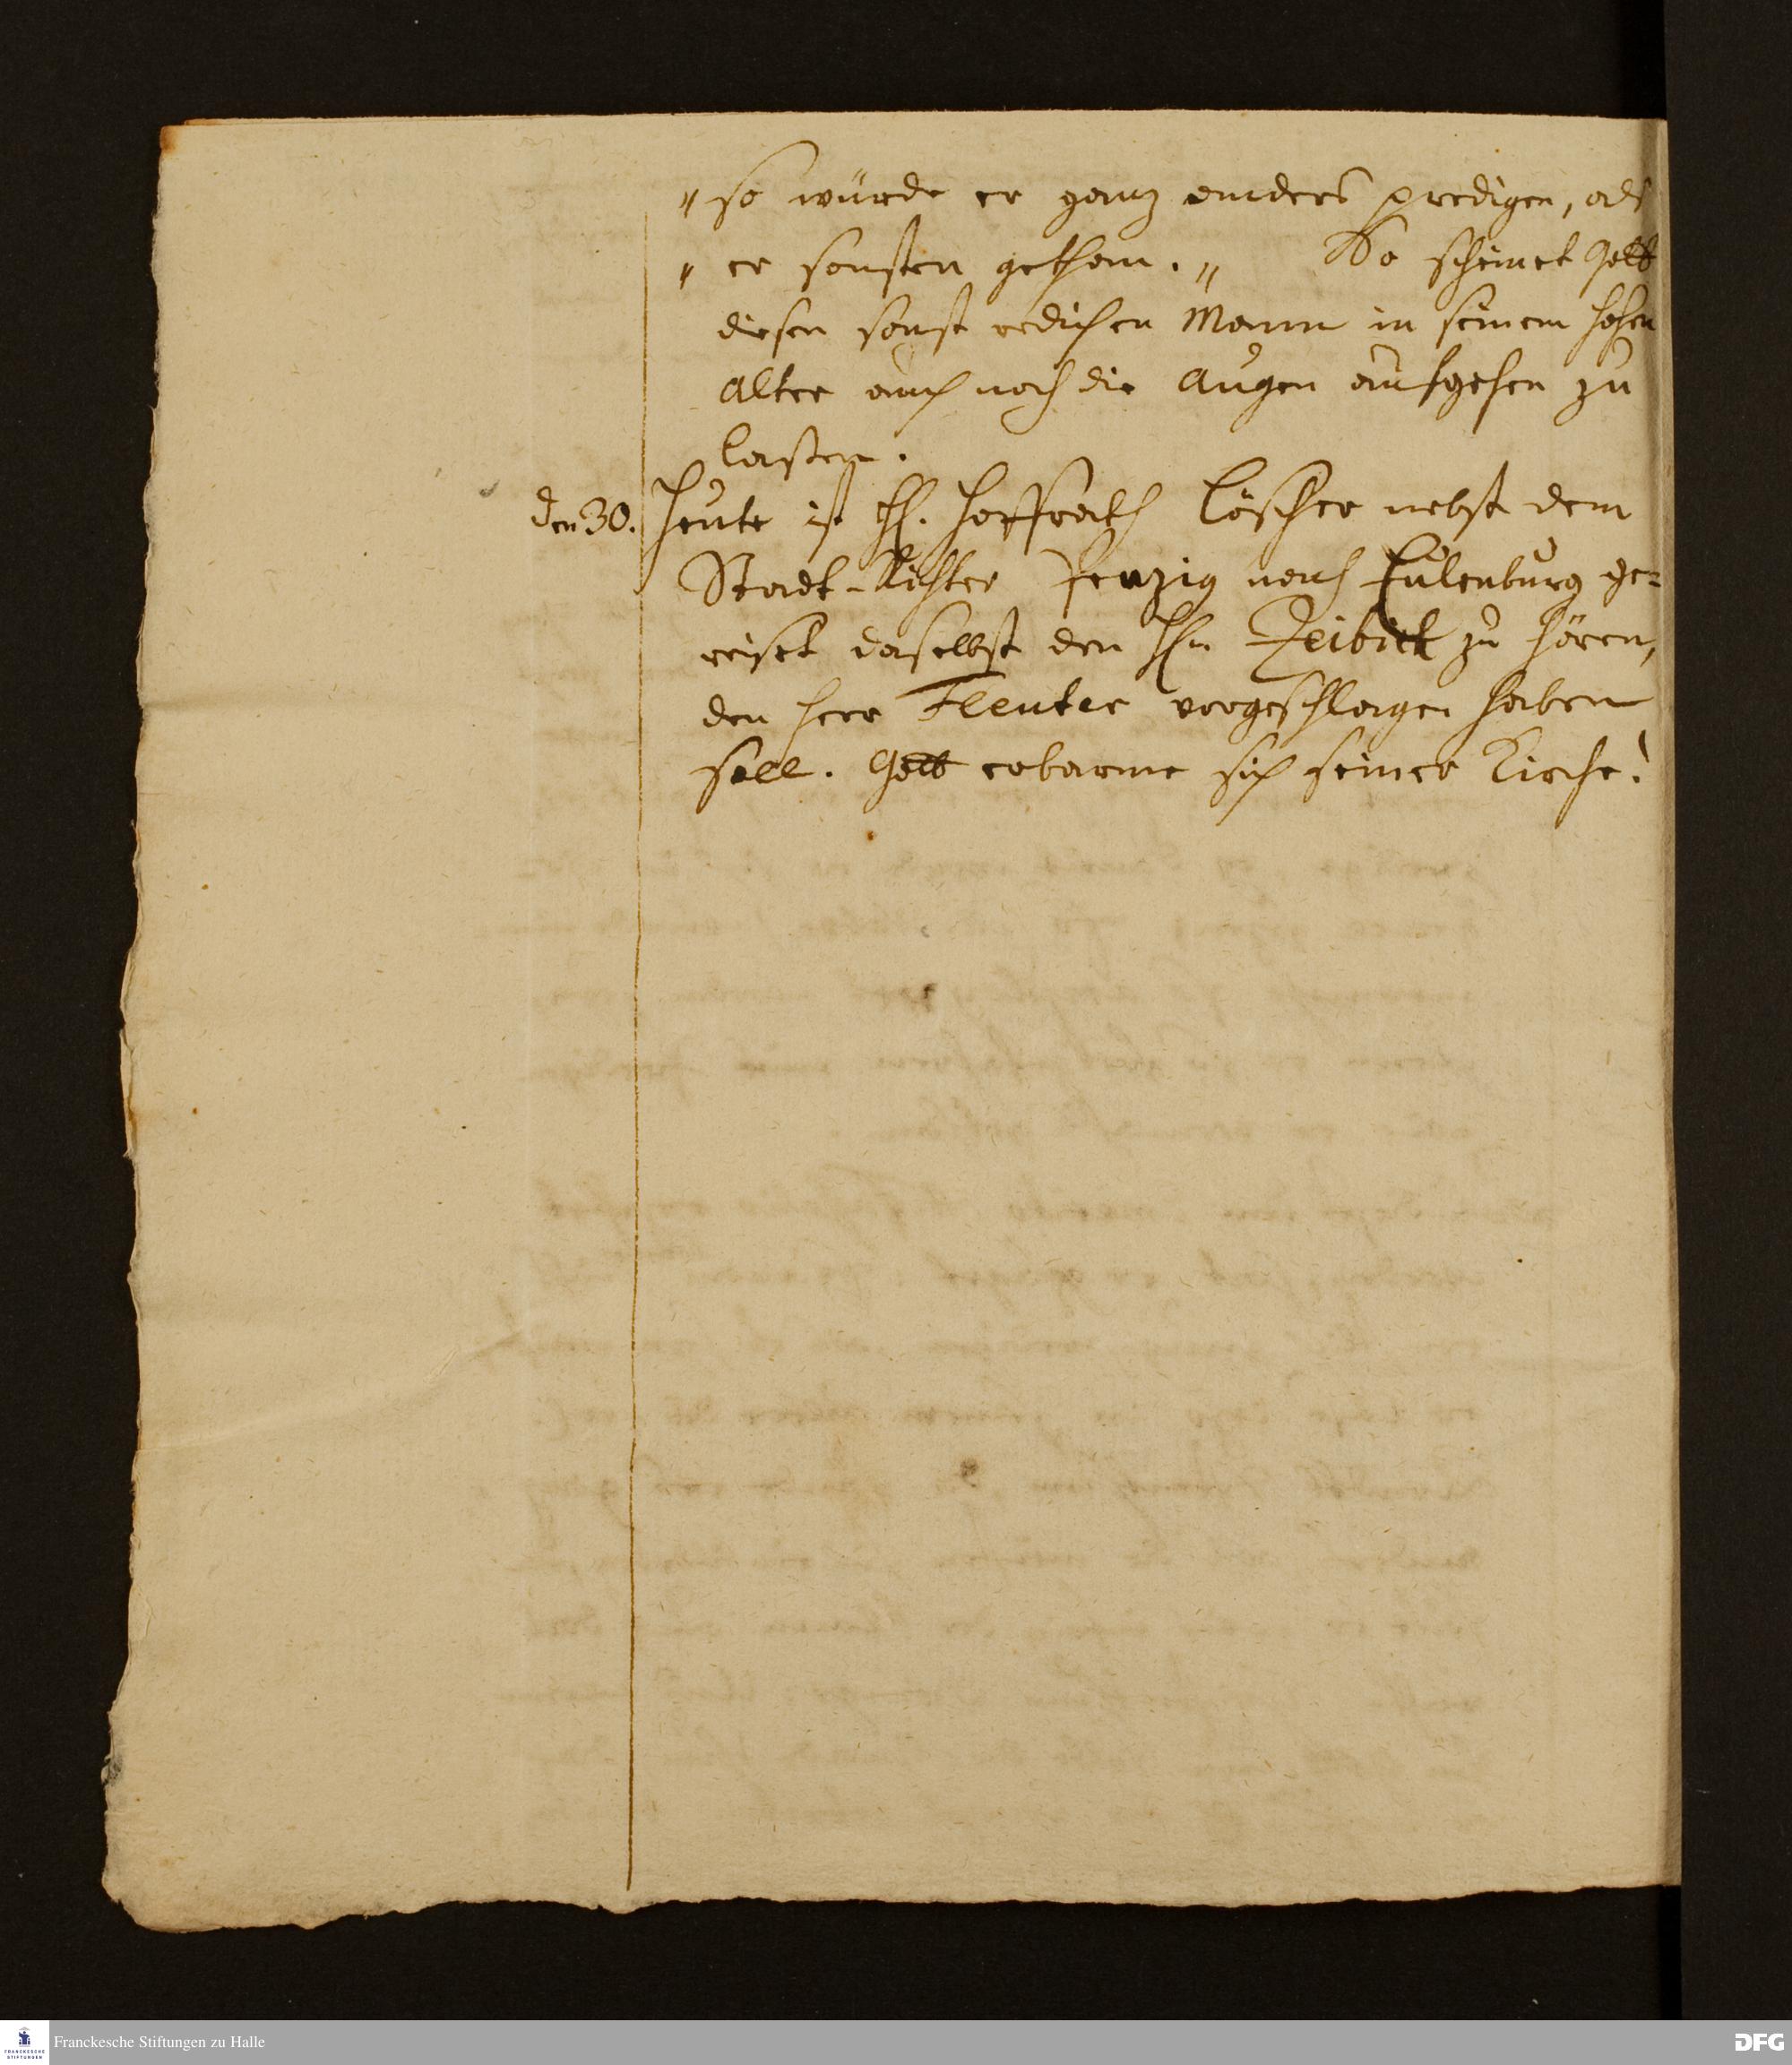 „so würde er ganz anders predigen, als
„er sonsten gethan.„ So scheinet Gott
diesen sonst redlichen Mann in seinem hohen
Alter auch noch die Augen aufgehen zu
laßen.
den 30. Heute ist H. Hoffrath Löscher nebst dem
Stadt-Richter nach Eulenburg ge-
reiset daselbst den Hn Zeibich zu hören,
den Herr Fleuter vorgeschlagen haben
soll. Gott erbarme sich seiner Kirche!
FRANCKESCHE
STIFTUNGEN
Franckesche Stiftungen zu Halle
DFG